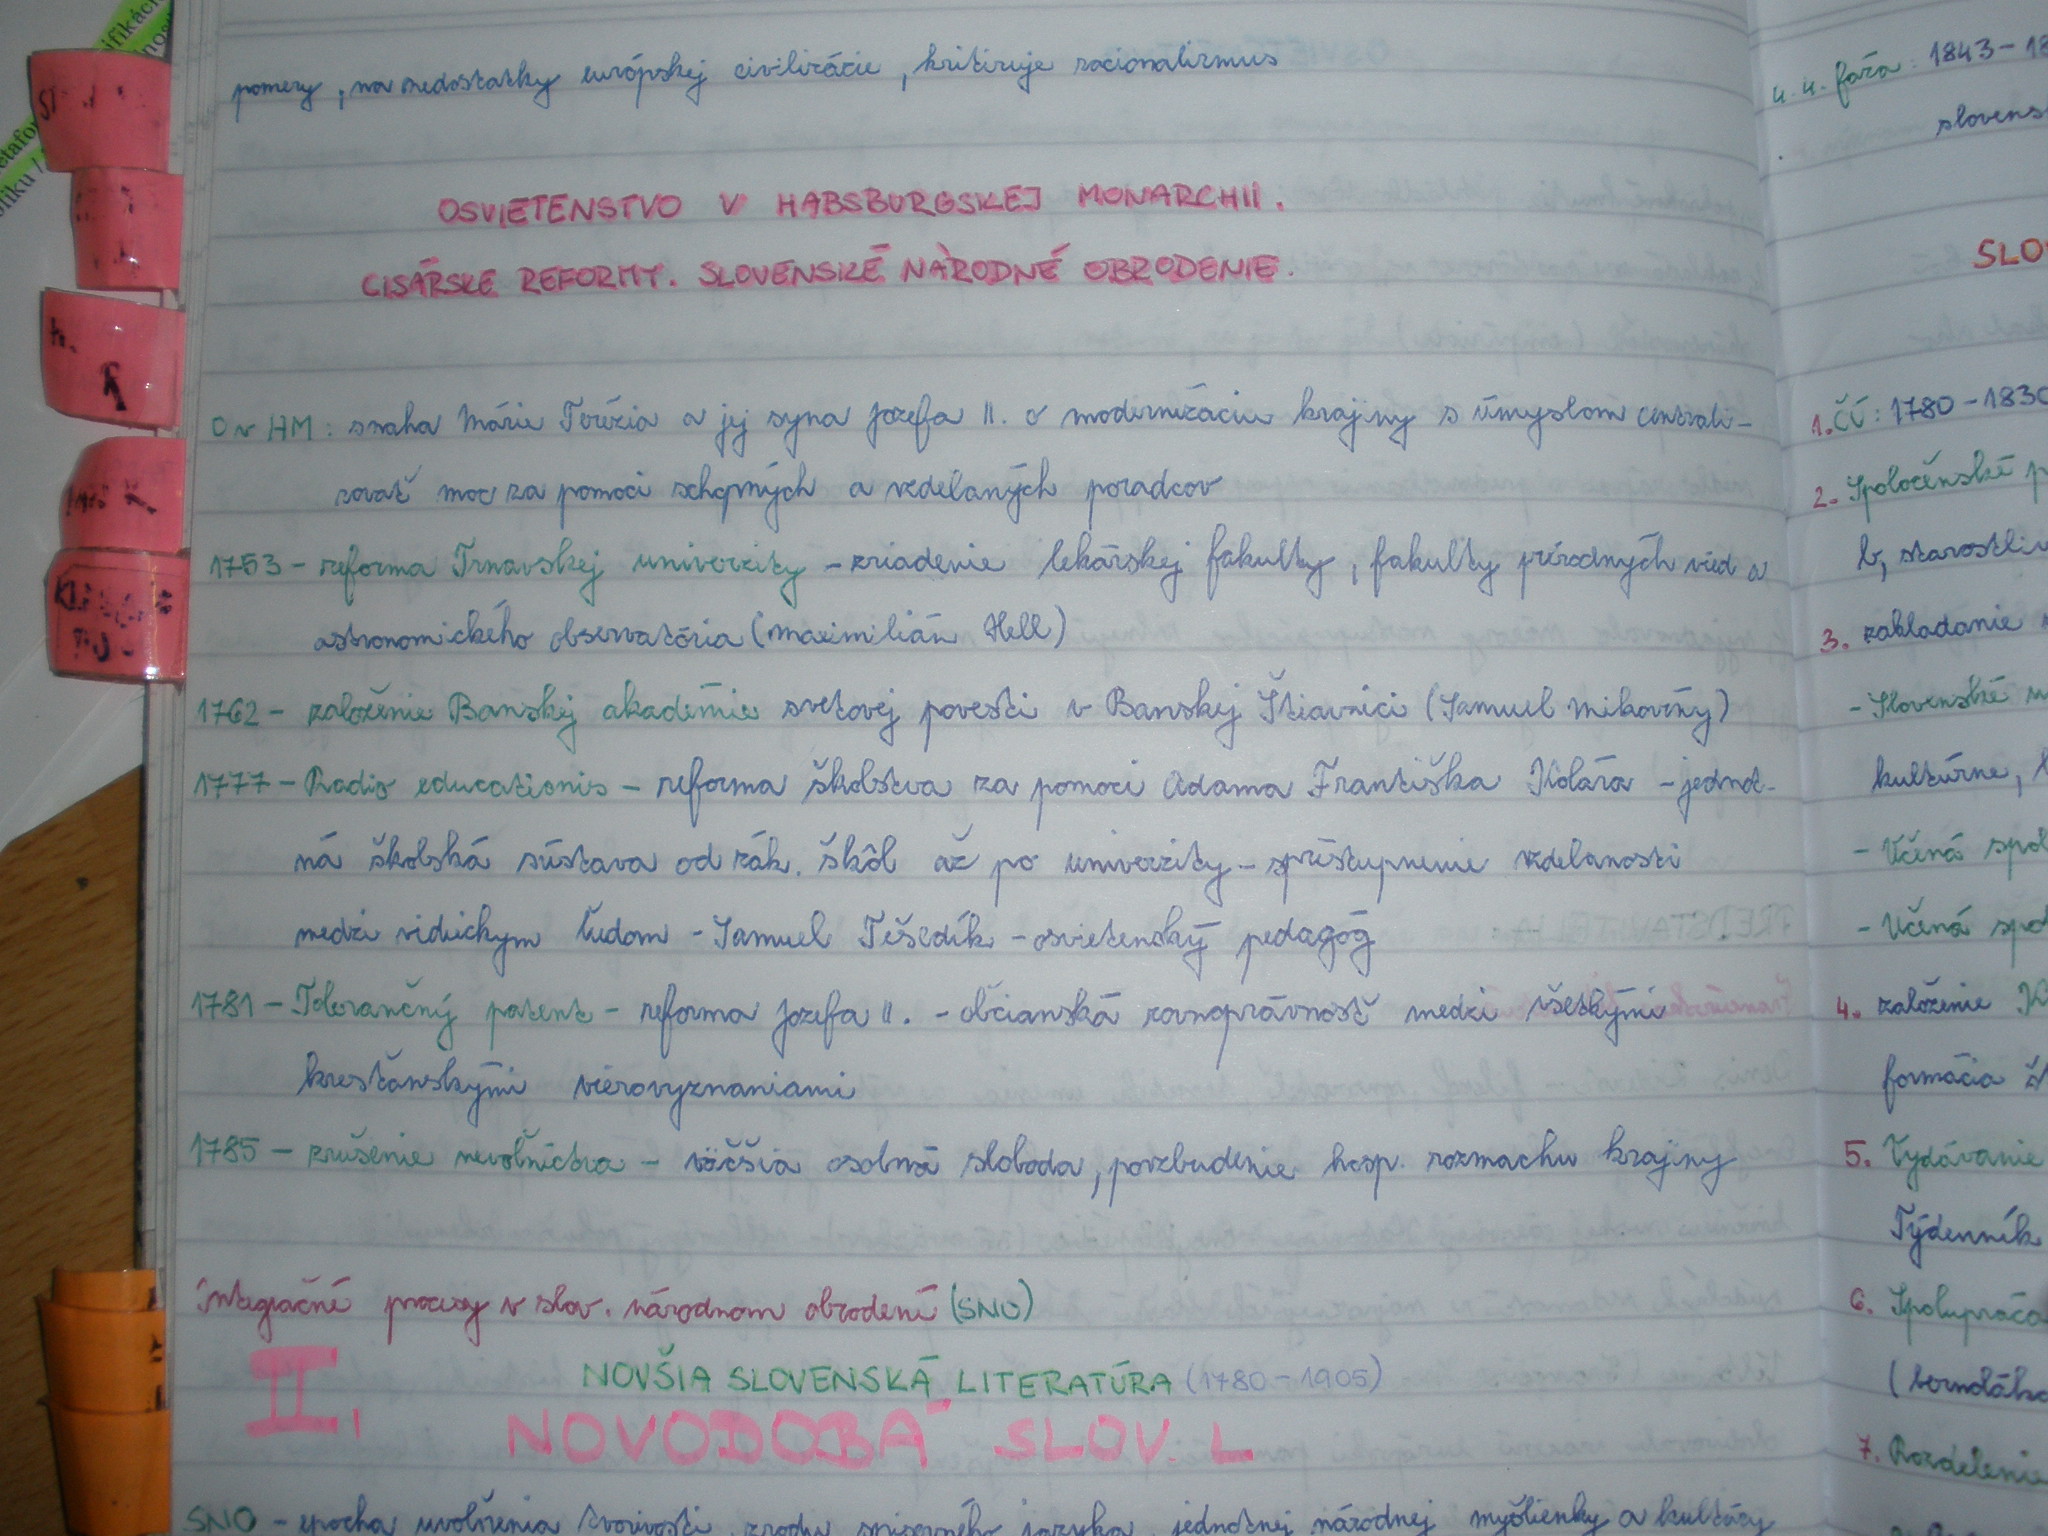 pomery, na nedostatky európskej civilizácie, kritizuje racionalizmus
OSVIETENSTVO V HABSBURGSKEJ MONARCHII.
CISÁRSKE REFORMY. SLOVENSKÉ NÁRODNÉ OBRODENIE.
O v HM: snaha Márie Terézia a jej syna Jozefa II. o modernizáciu krajiny s úmyslom centrali-
zovať moc za pomoci schopných a vzdelaných poradcov
1753 - reforma Trnavskej univerzity - zriadenie lekárskej fakulty, fakulty prírodných vied a
astronomického observatória (Maximilián Hell)
1762 - založenie Banskej akadémie svetovej povesti v Banskej Štiavnici (Samuel Mikovíny)
1777 - Radio educationis - reforma školstva za pomoci Adama Františka Kolára - jednot-
ná školská sústava od zák. škôl až po univerzity - sprístupnenie vzdelanosti
medzi vidieckym ľudom - Samuel Tešedík - osvietenský pedagóg
1781 - Tolerančný patent - reforma Jozefa II. - občianská rovnoprávnosť medzi všetkými
kresťanskými vierovyznaniami
1785 - zrušenie nevoľníctva - väčšia osobná sloboda, povzbudenie hosp. rozmachu krajiny
integračné procesy v slov. národnom obrodení (SNO)
NOVŠIA SLOVENSKÁ LITERATÚRA (1780-1905)
II, NOVODOBÁ SLOV. L
SNO - epocha uvoľnenia tvorivosti, zrodu spisovného jazyka, jednotnej národnej myšlienky a kultúry
4. fáza: 1843-18
slovens
SLO
1. ČÚ: 1780-1830
2. Spoločenské p
b, starostliv
3. zakladanie
- Slovenské
kultúrne,
- Učená spol
- Učená spo
4. založenie
formácia
5. Vydávanie
Týdenník
6. Spolupráca
(bernoláko
7. Rozdelenie